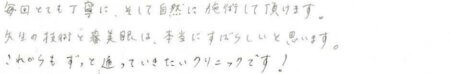 毎回とても丁寧に、そして自然に施術して頂けます。
先生の技術と審美眼は、本当にすばらしいと思います。
これからもずっと通っていきたいクリニックです!